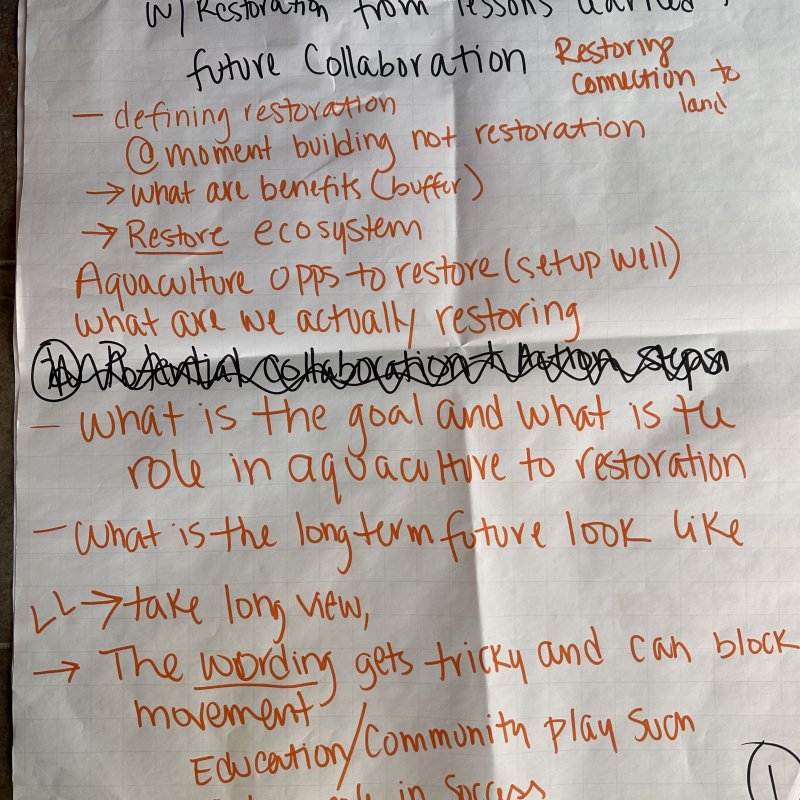 w/ Restoration from lessons learned,
future Collaboration
Restoring
connection to
land
— defining restoration
@ moment building not restoration
→ what are benefits (buffer)
→ Restore ecosystem
Aquaculture opps to restore (setup well)
what are we actually restoring
Potential collaboration + Action steps
— what is the goal and what is the
role in aquaculture to restoration
— What is the long term future look like
LL → take long view,
→ The wording gets tricky and can block
movement
Education/Community play such
in success
1